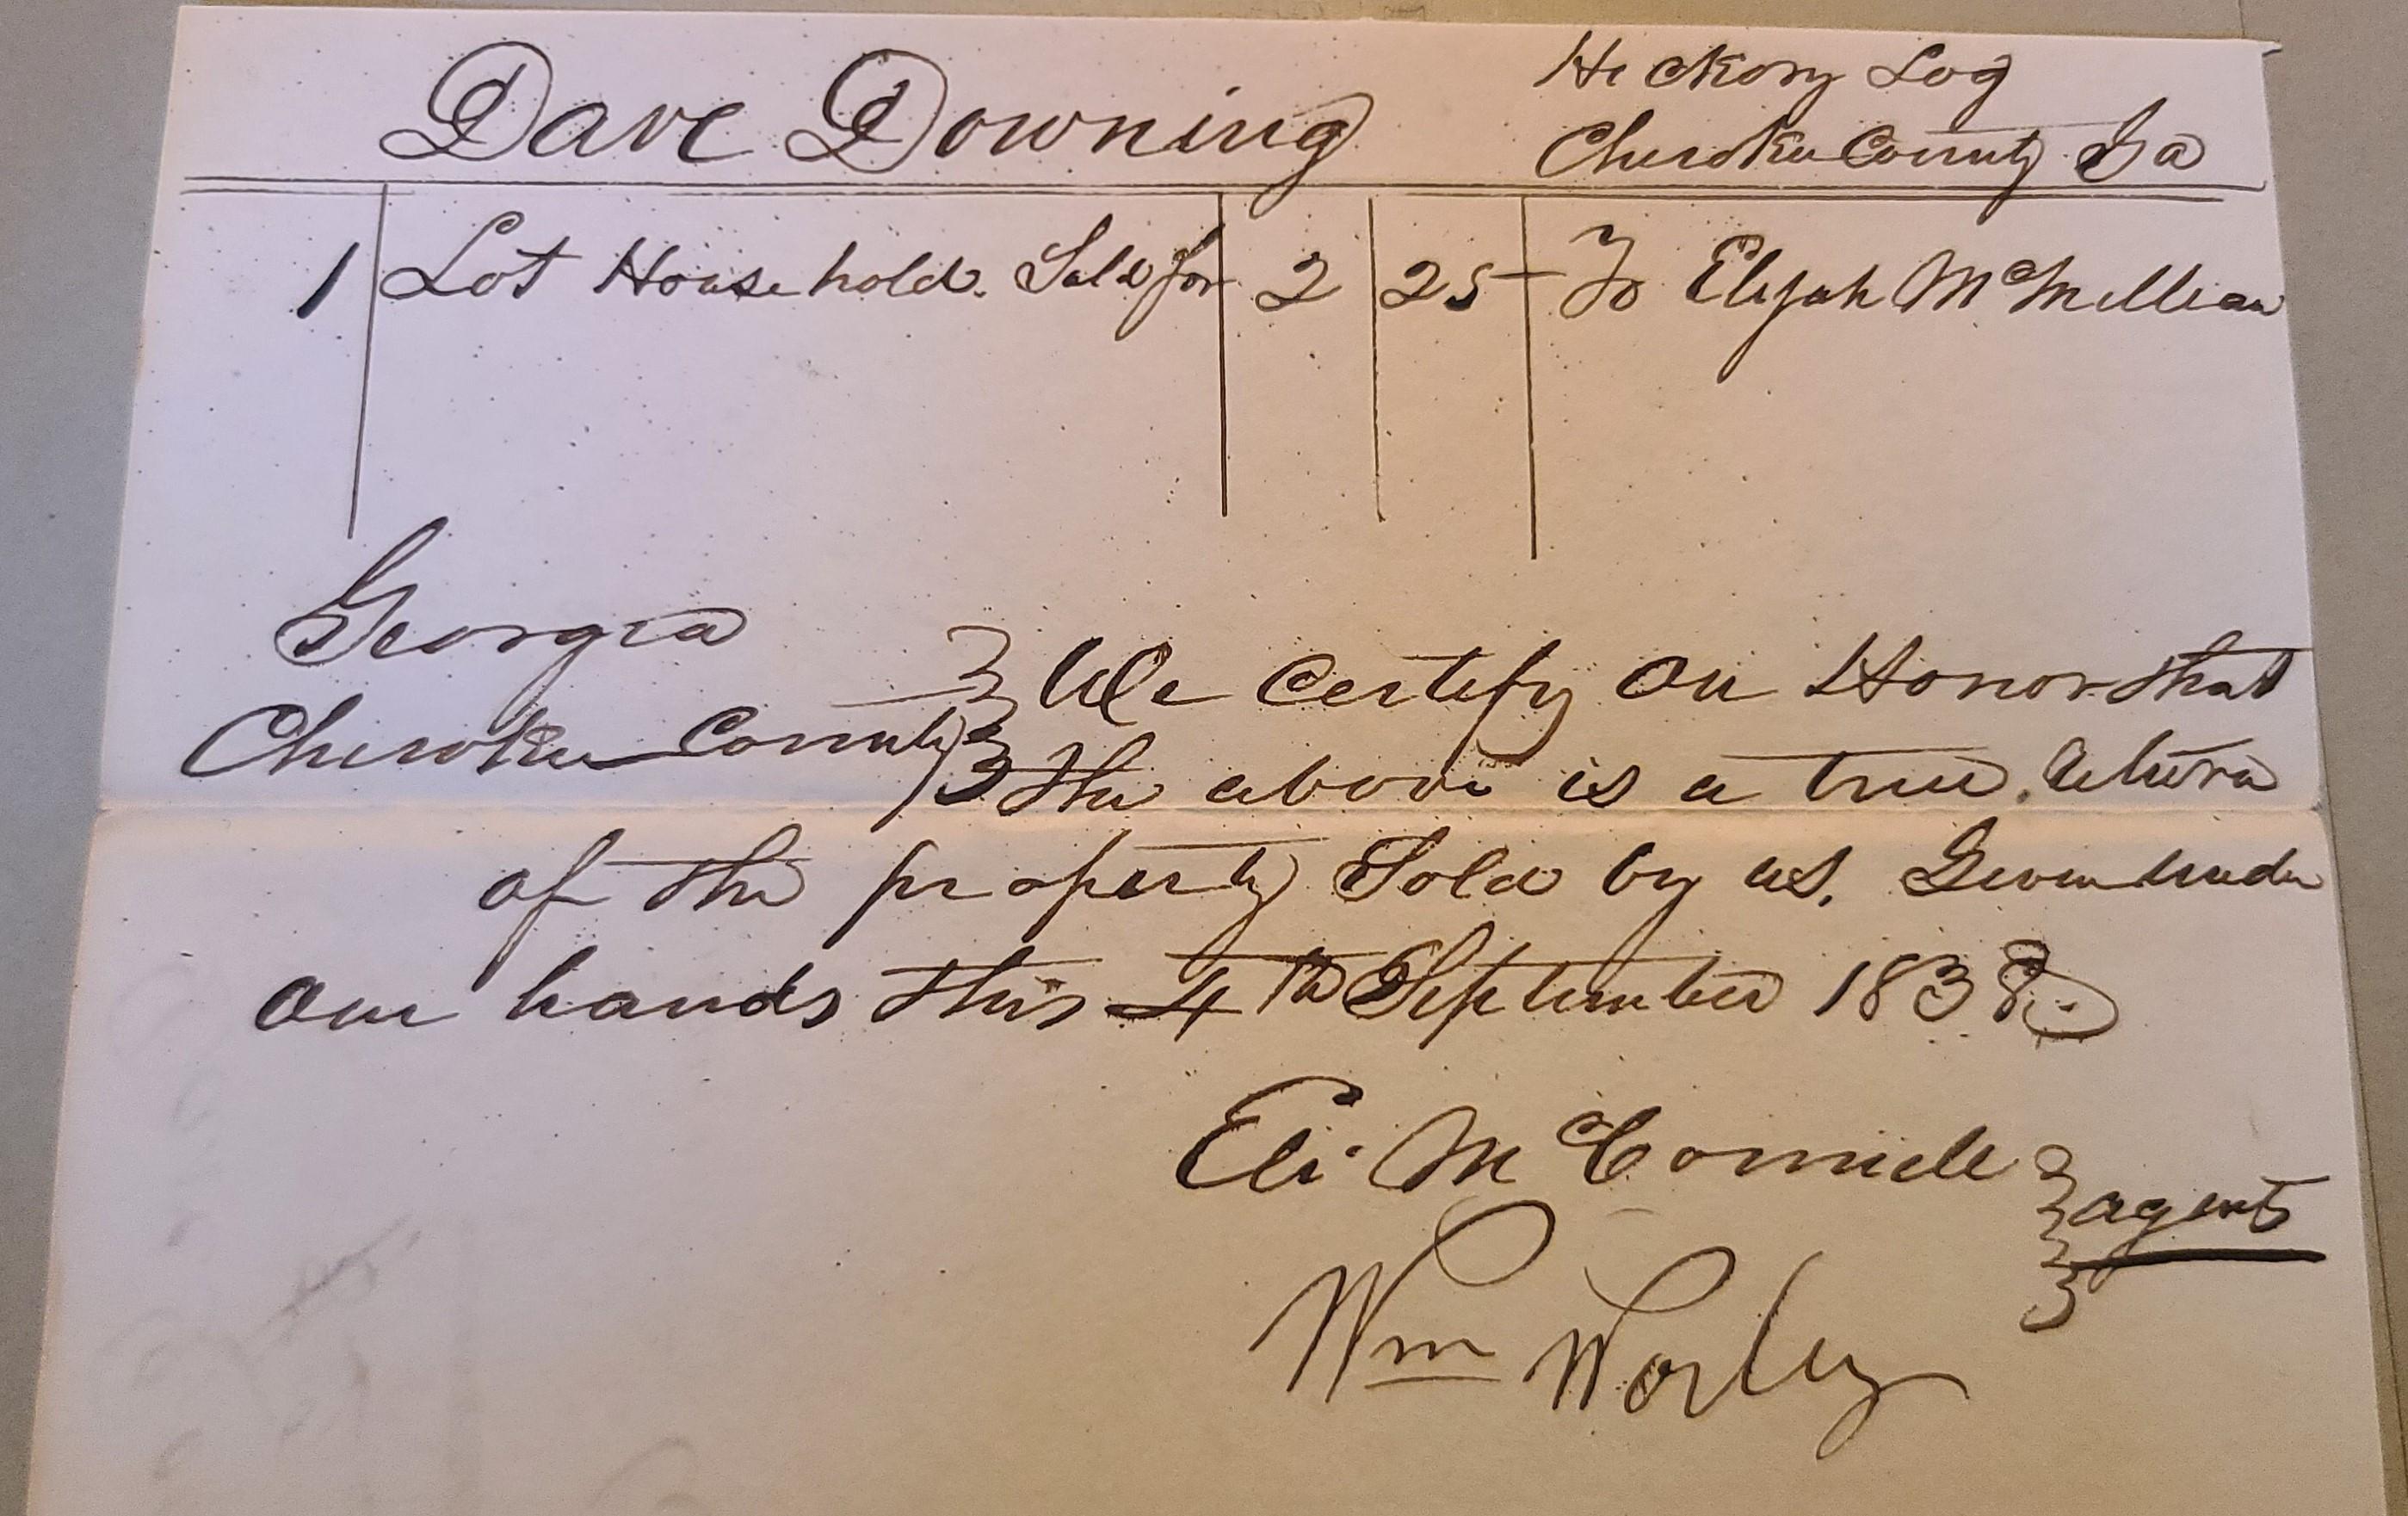 Dave Downing
Hickory Log
Cherokee County Ga
1 Lot Household. Sold for 2 25 To Elijah McMillian
Georgia
Cherokee County
We Certify On Honor that
the above is a true return
of the property Sold by us. Given under
our hands this 4th September 1838
Eli McConnell
agents
Wm Worley